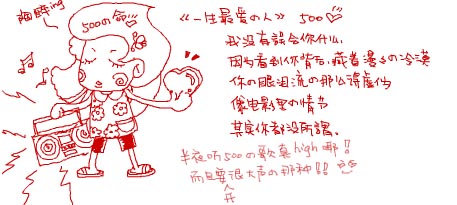 陶醉ing
500の命
《一生最爱の人》 500
我没有誤会你什么,
因为看到你背后,藏着漫々の冷漠
你の眼泪流の那么得虚伪
像电影里の情节
其实你都没所謂。
半夜听500の歌真high哪!!
而且要开很大声の那种!!